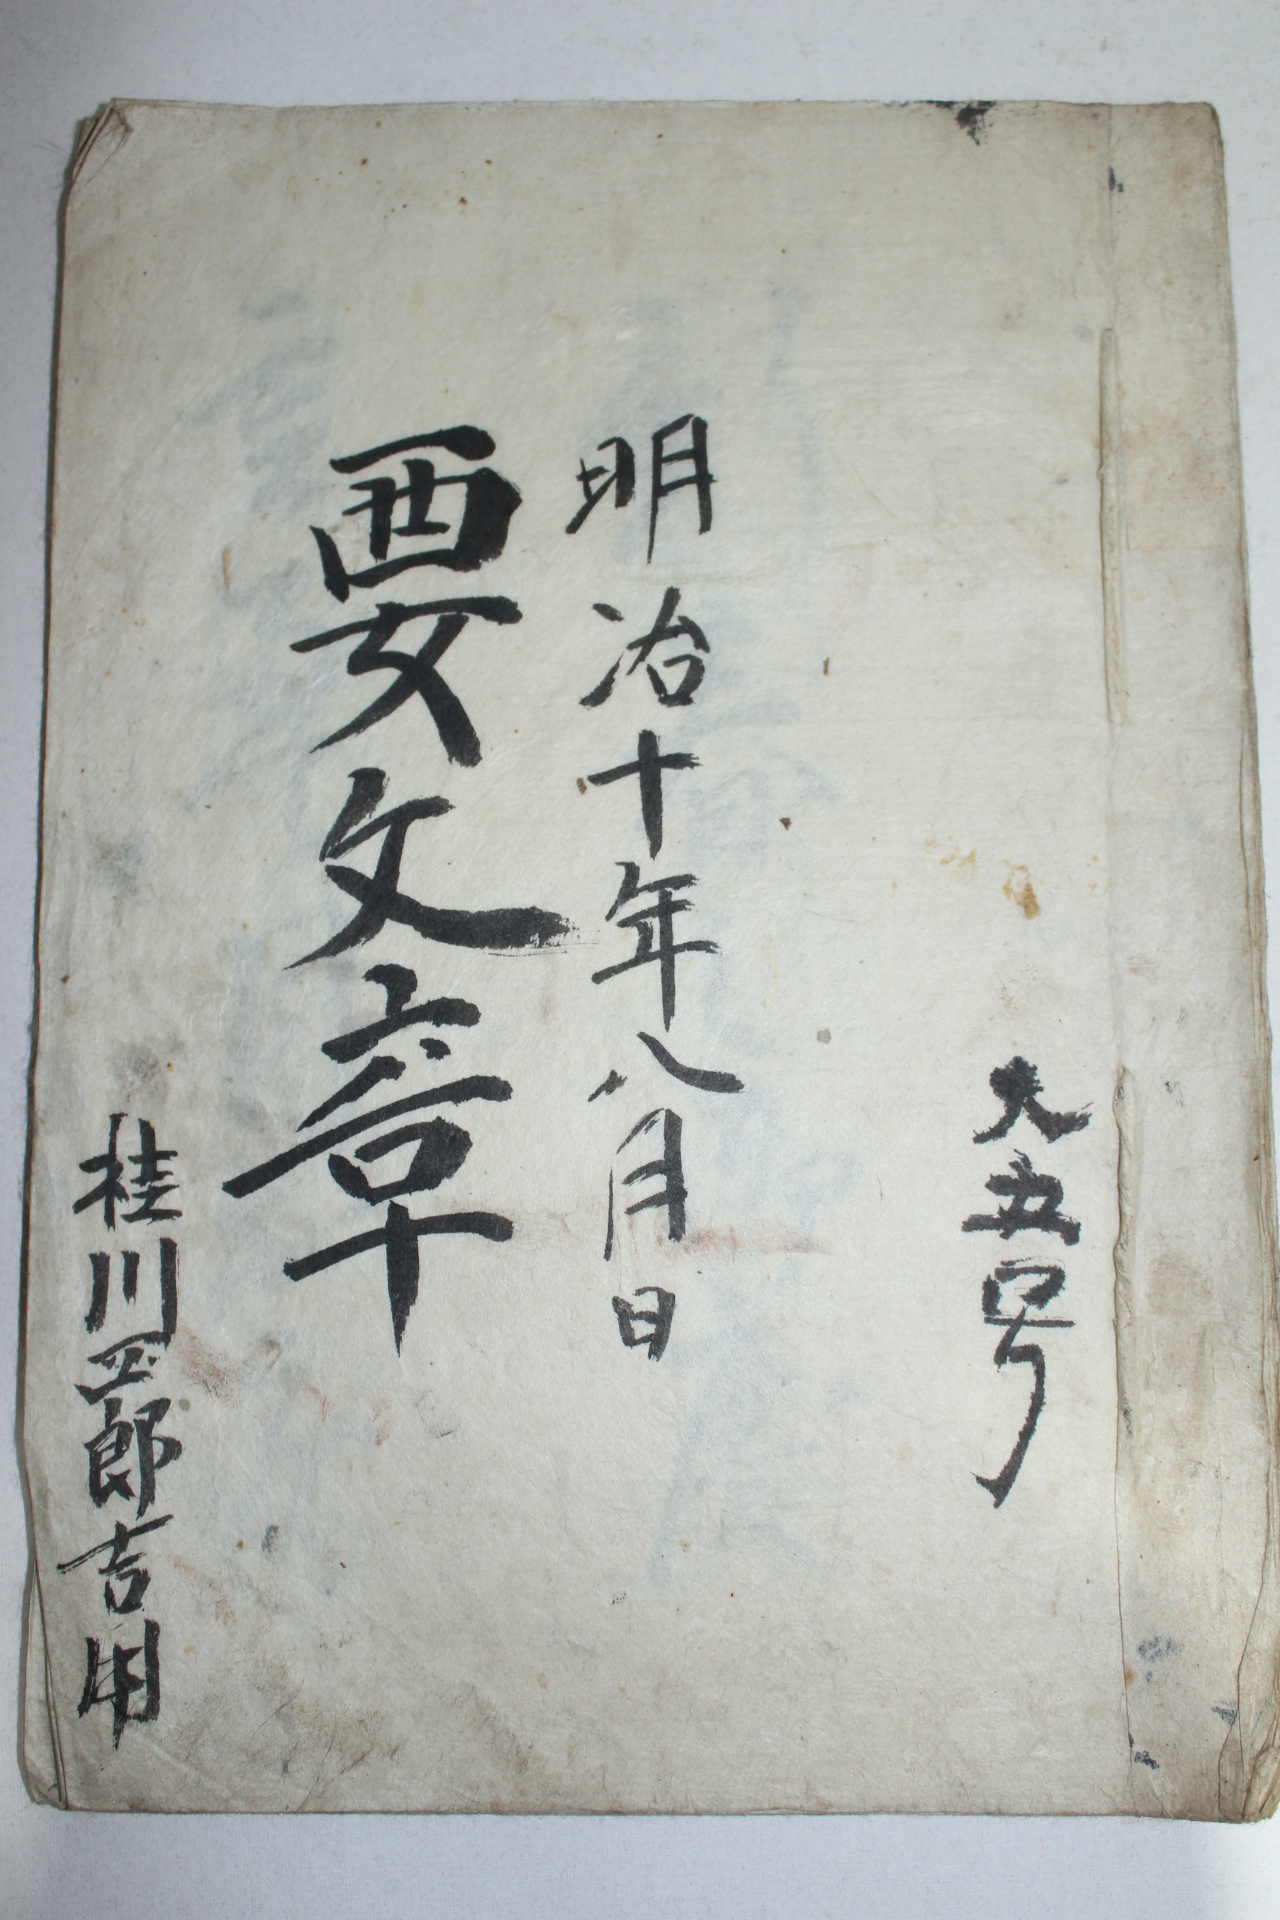 大五号
明治十年八月日
要文章
桂川四郎吉用